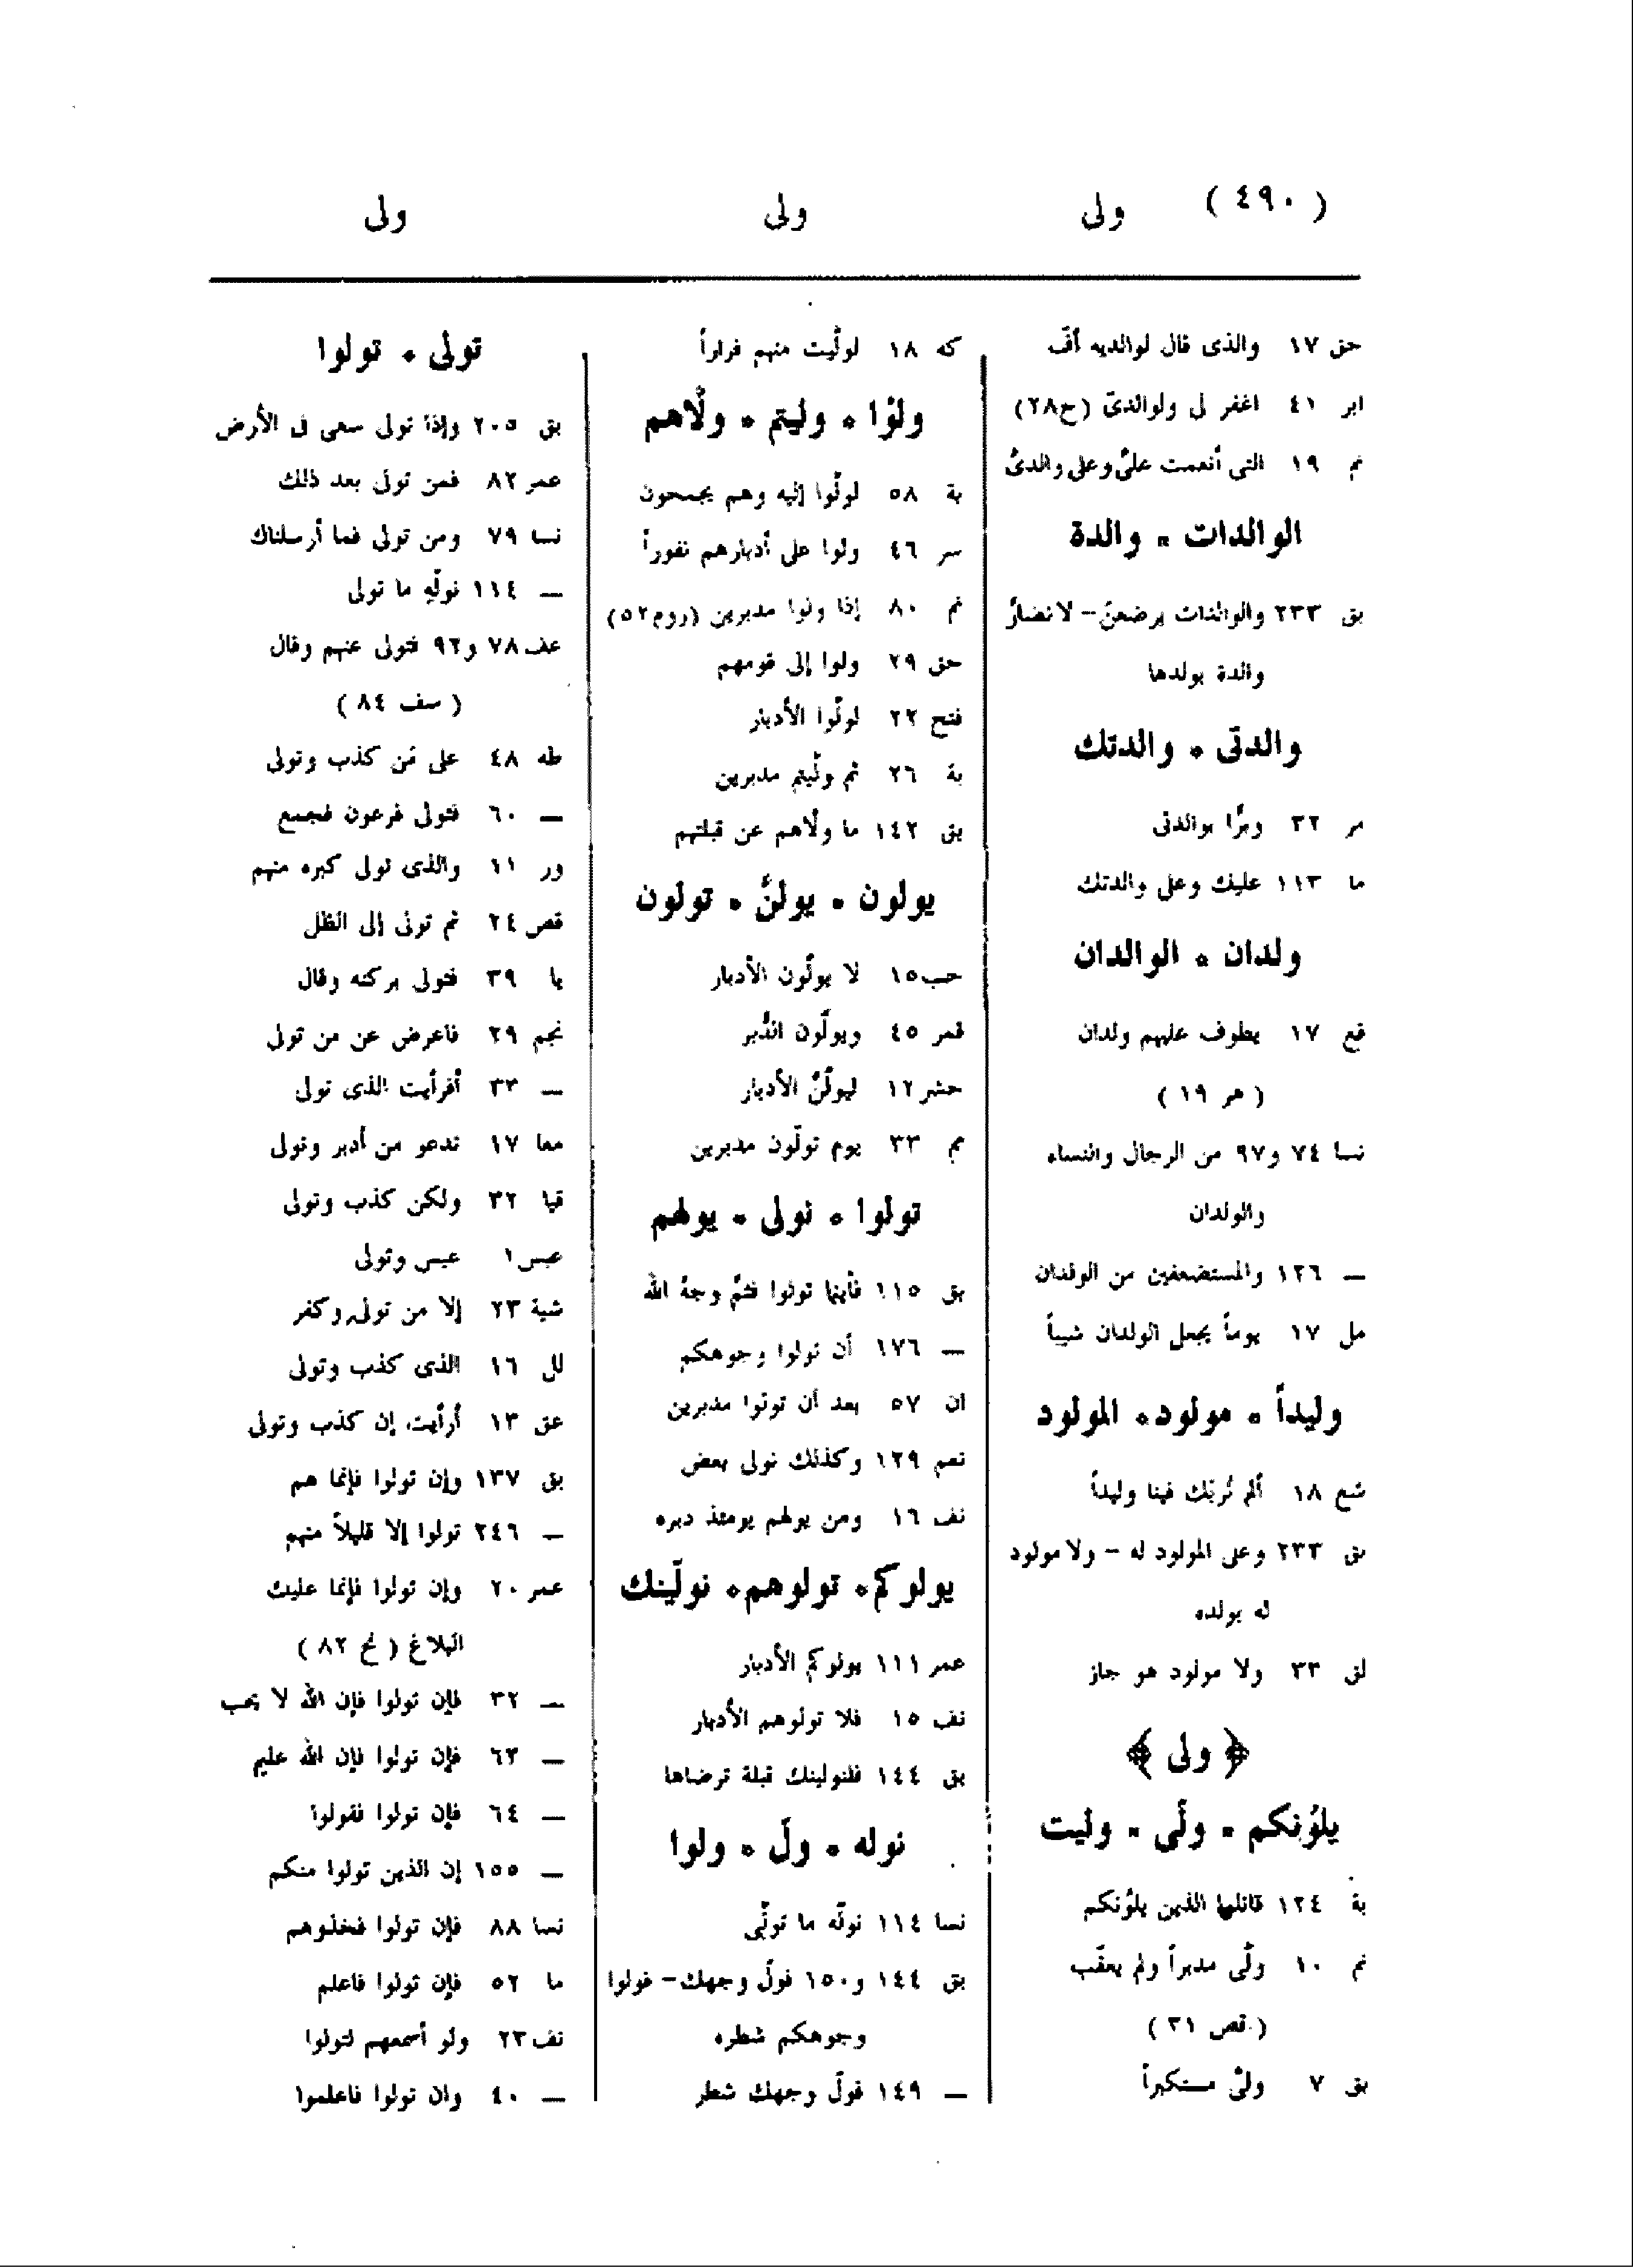 ( ٤٩٠ ) ولى ولى ولى
حق ١٧ والذى قال لوالديه أفّ
ابر ٤١ اغفر لى ولوالدىّ (ح٢٨)
نم ١٩ التى أنعمت علىّ وعلى والدىّ
الوالدات * والدة
بق ٢٣٣ والوالدات يرضعن - لا تضارّ
والدة بولدها
والدتى * والدتك
مر ٣٢ وبرًّا بوالدتى
ما ١١٣ عليك وعلى والدتك
ولدان * الوالدان
قع ١٧ يطوف عليهم ولدان
( هر ١٩ )
نسا ٧٤ و٩٧ من الرجال والنساء
والولدان
— ١٢٦ والمستضعفين من الولدان
مل ١٧ يوماً يجعل الولدان شيباً
وليداً * مولود * المولود
شع ١٨ ألم نُربّك فينا وليداً
بق ٢٣٣ وعلى المولود له - ولا مولود
له بولده
لق ٣٣ ولا مولود هو جاز
﴿ ولى ﴾
يلوُنكم * ولّى * وليت
بة ١٢٤ قاتلوا الذين يلوُنكم
نم ١٠ ولّى مدبراً ولم يعقّب
( قص ٣١ )
بق ٧ ولىّ مستكبراً
كه ١٨ لولّيت منهم فراراً
ولوْا * وليتم * ولّاهم
بة ٥٨ لولّوا إليه وهم يجمحون
سر ٤٦ ولوا على أدبارهم نفوراً
نم ٨٠ إذا ولوا مدبرين (روم٥٢)
حق ٢٩ ولوا إلى قومهم
فتح ٢٢ لولّوا الأدبار
بة ٢٦ ثم ولّيتم مدبرين
بق ١٤٢ ما ولّاهم عن قبلتهم
يولون * يولنّ * تولون
حب١٥ لا يولّون الأدبار
قمر ٤٥ ويولّون الدُّبر
حشر ١٢ ليولّنّ الأدبار
مم ٣٣ يوم تولّون مدبرين
تولوا * نولى * يولهم
بق ١١٥ فأينما تولوا فثمّ وجهُ الله
— ١٧٦ أن تولوا وجوهكم
ان ٥٧ بعد أن تولوا مدبرين
نعم ١٢٩ وكذلك نولى بعض
نف ١٦ ومن يولهم يومئذ دبره
يولوكم * تولوهم * نولّينك
عمر ١١١ يولوكم الأدبار
نف ١٥ فلا تولوهم الأدبار
بق ١٤٤ فلنولينك قبلة ترضاها
نوله * ولّ * ولوا
نسا ١١٤ نولّه ما تولّى
بق ١٤٤ و١٥٠ فولّ وجهك - فولوا
وجوهكم شطره
— ١٤٩ فولّ وجهك شطر
تولى * تولوا
بق ٢٠٥ وإذا تولى سعى فى الأرض
عمر ٨٢ فمن تولى بعد ذلك
نسا ٧٩ ومن تولى فما أرسلناك
— ١١٤ نولّهِ ما تولى
عف ٧٨ و٩٢ فتولى عنهم وقال
( سف ٨٤ )
طه ٤٨ على مَن كذب وتولى
— ٦٠ فتولى فرعون فجمع
ور ١١ والذى تولى كبره منهم
قص ٢٤ ثم تولى إلى الظل
يا ٣٩ فتولى بركنه وقال
نجم ٢٩ فاعرض عن من تولى
— ٣٣ أفرأيت الذى تولى
معا ١٧ تدعو من أدبر وتولى
قيا ٣٢ ولكن كذب وتولى
عبس١ عبس وتولى
شية ٢٣ إلا من تولى وكفر
لل ١٦ الذى كذب وتولى
عق ١٣ أرأيت إن كذب وتولى
بق ١٣٧ وإن تولوا فإنما هم
— ٢٤٦ تولوا إلا قليلاً منهم
عمر ٢٠ وإن تولوا فإنما عليك
البلاغ ( نح ٨٢ )
— ٣٢ فإن تولوا فإن الله لا يحب
— ٦٣ فإن تولوا فإن الله عليم
— ٦٤ فإن تولوا فقولوا
— ١٥٥ إن الذين تولوا منكم
نسا ٨٨ فإن تولوا فخذوهم
ما ٥٢ فإن تولوا فاعلم
نف ٢٣ ولو أسمعهم لتولوا
— ٤٠ وان تولوا فاعلموا